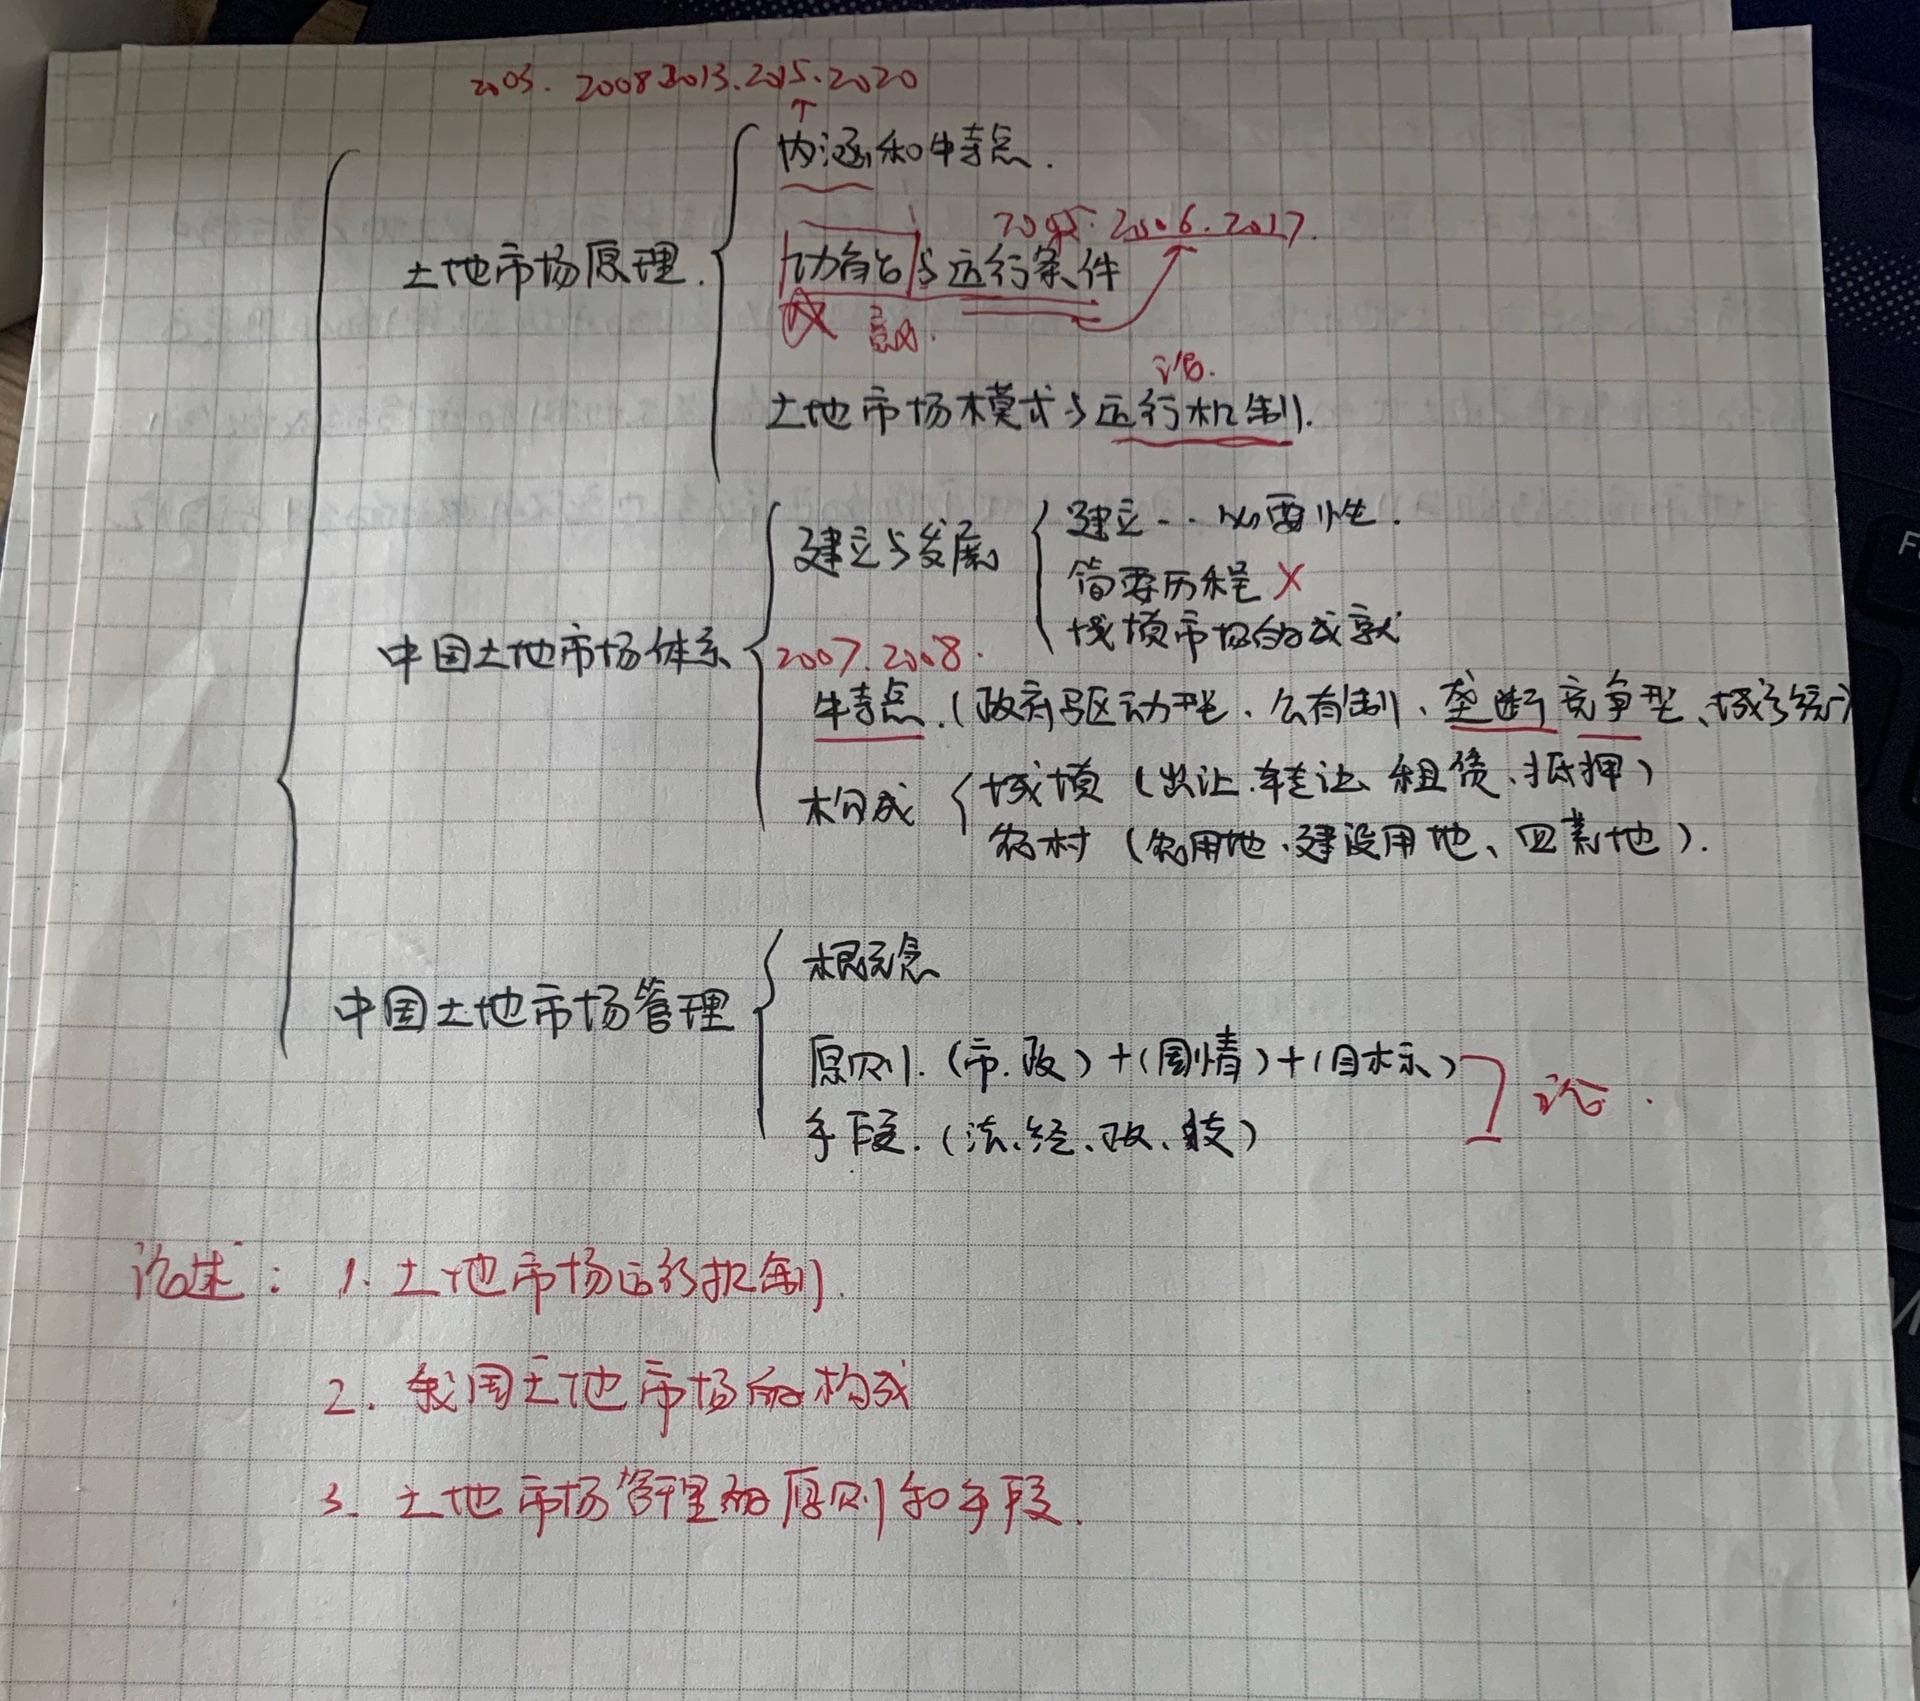 2003. 2008 2013. 2015. 2020
↑
内涵和特点.
2005. 2006. 2017.
土地市场原理. 功能与运行条件
意义.
论.
土地市场模式与运行机制.
建立与发展 建立.. 必要性.
简要历程 ×
城镇市场的成就
中国土地市场体系 2007. 2008.
特点. (政府驱动型、公有制、垄断竞争型、城乡统一)
构成 城镇 (出让、转让、租赁、抵押)
农村 (农用地、建设用地、四荒地).
概念
中国土地市场管理
原则. (市.政)+(国情)+(目标)
论.
手段. (法、经、政、技)
论述: 1. 土地市场运行机制.
2. 我国土地市场的构成
3. 土地市场管理的原则和手段.